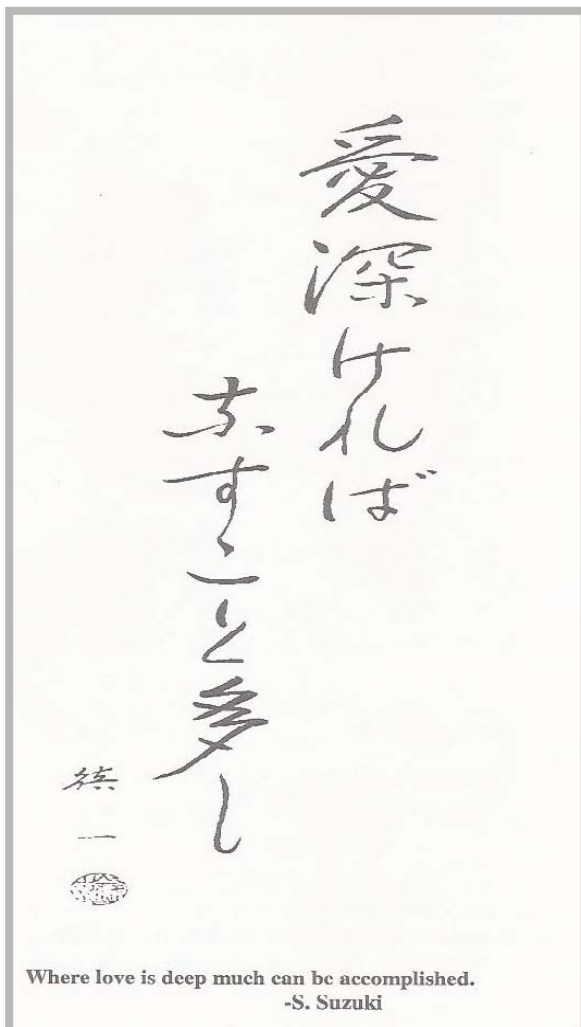 愛深ければ
なすこと多し
鎮一
Where love is deep much can be accomplished.
-S. Suzuki